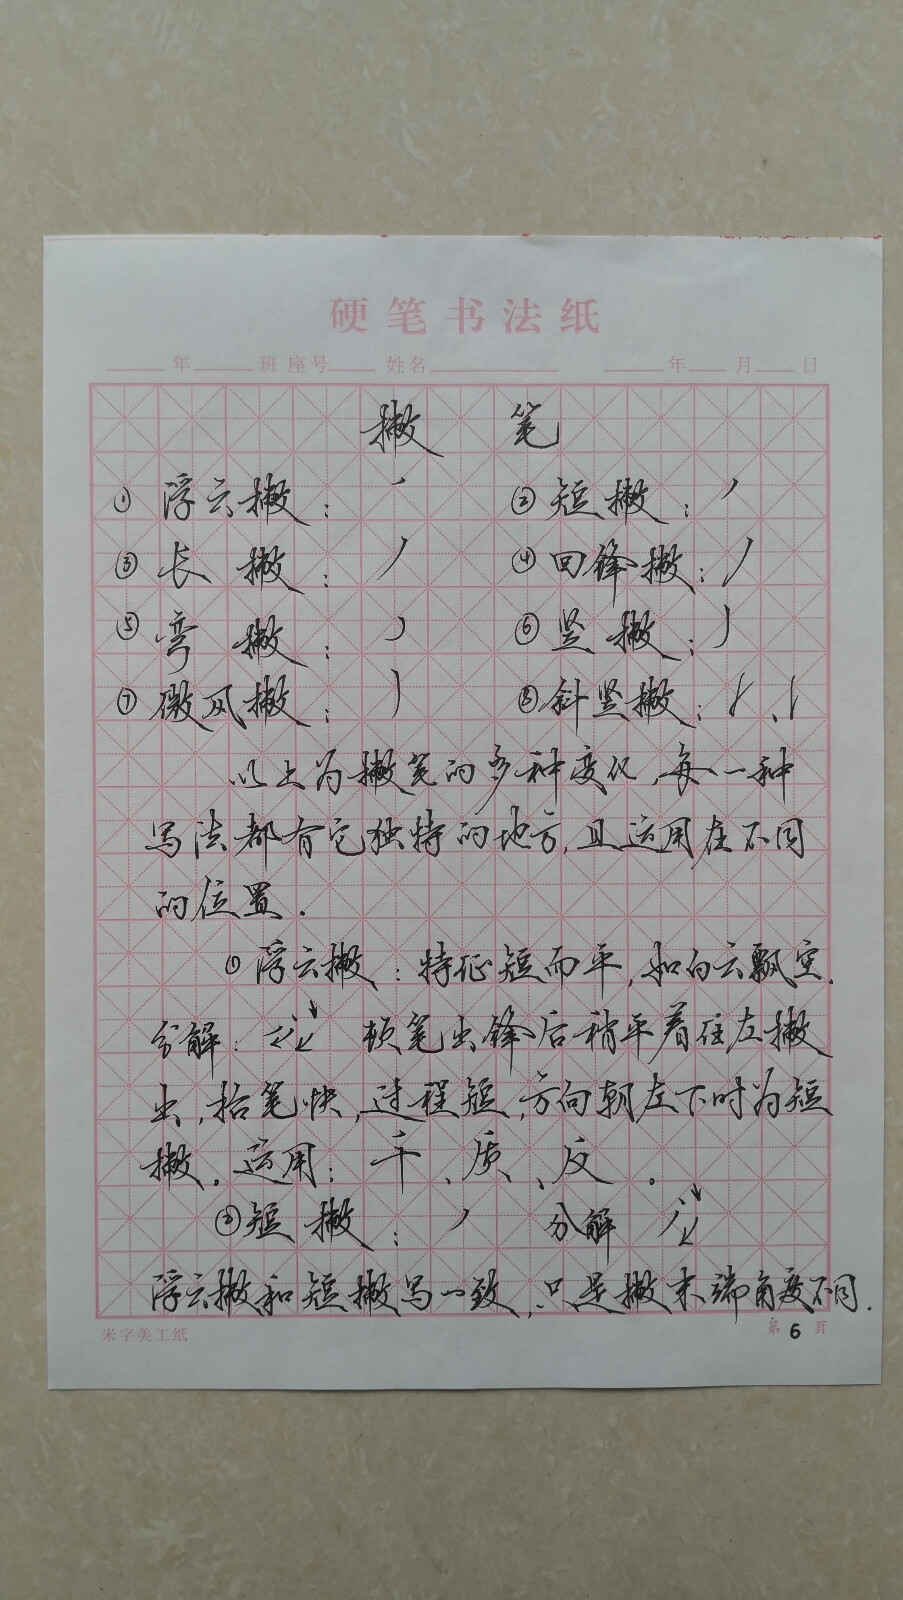 硬笔书法纸
年 班 座号 姓名 年 月 日
撇 笔
① 浮云撇： ② 短撇：
③ 长撇： ④ 回锋撇：
⑤ 弯撇： ⑥ 竖撇：
⑦ 微风撇： ⑧ 斜竖撇： 、
以上为撇笔的多种变化，每一种
写法都有它独特的地方，且运用在不同
的位置.
① 浮云撇：特征短而平，如白云飘空.
分解： 顿笔出锋后稍平着往左撇
出，抬笔快，过程短，方向朝左下时为短
撇。运用：千、质、反。
② 短撇： 分解
浮云撇和短撇写一致，只是撇末端角度不同.
米字美工纸 第 6 頁